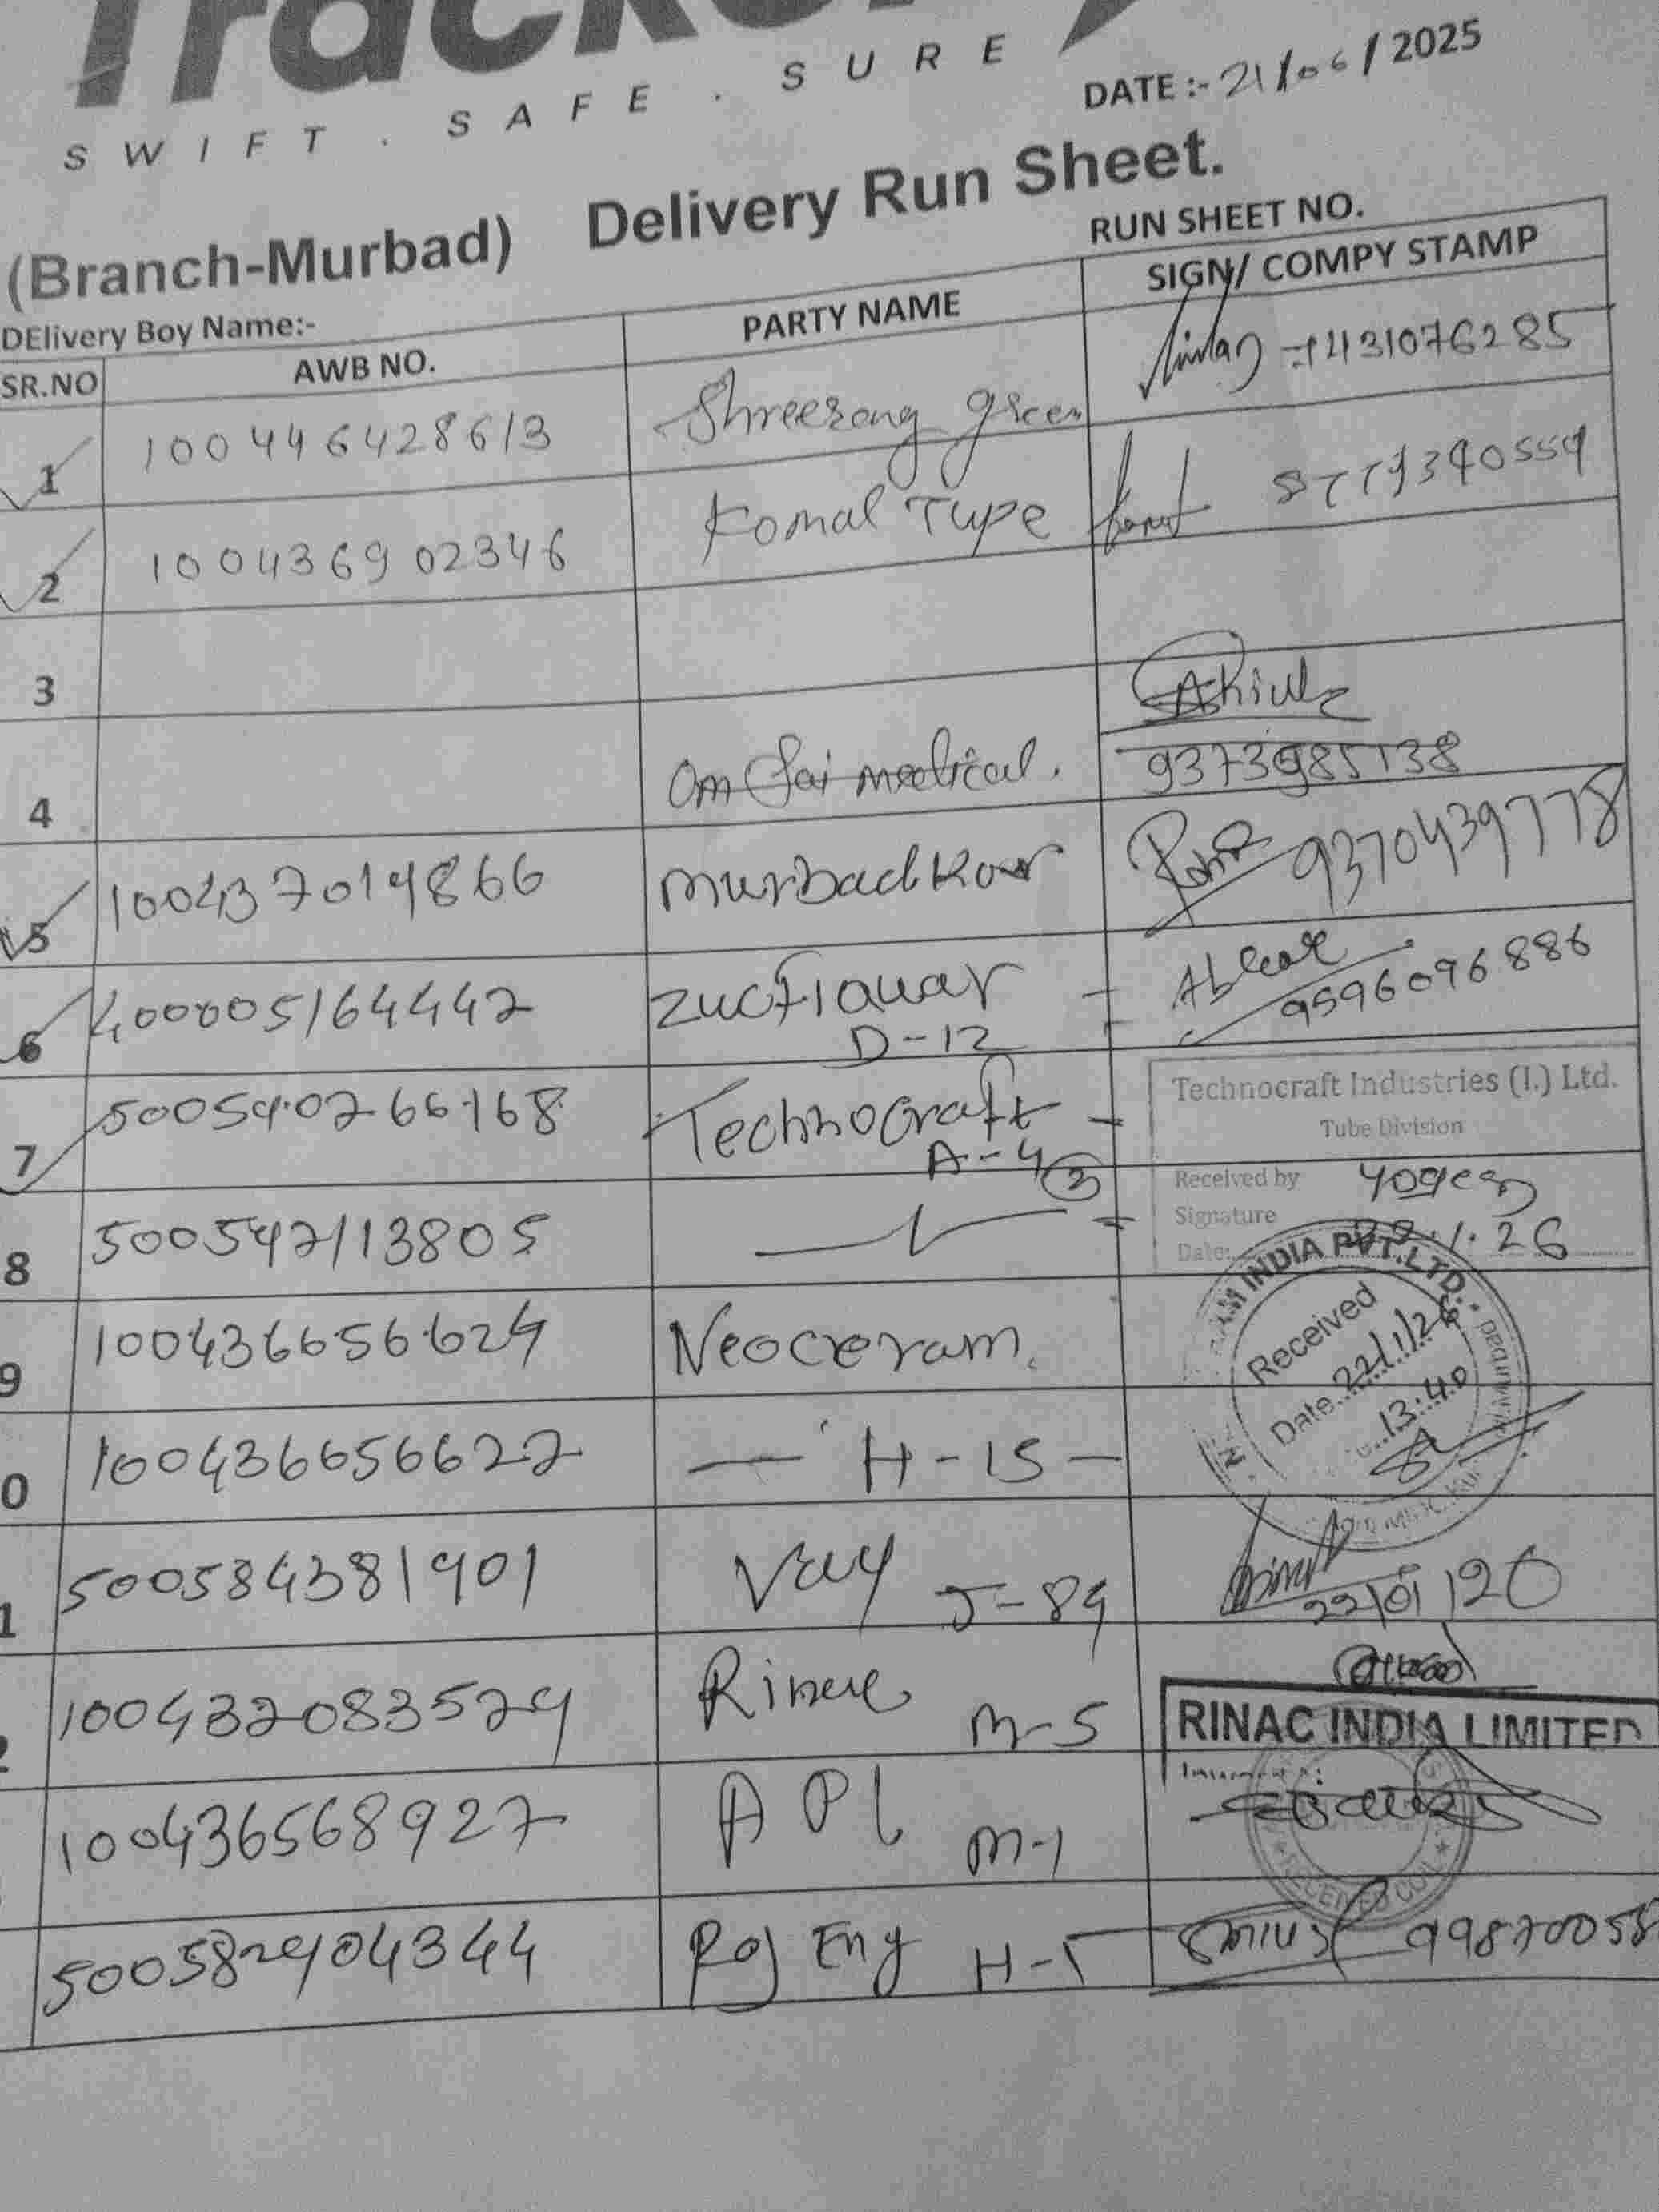 SWIFT . SAFE . SURE
DATE :- 21/06/2025
(Branch-Murbad) Delivery Run Sheet.
RUN SHEET NO.
DElivery Boy Name:-
SR.NO AWB NO. PARTY NAME SIGN/ COMPY STAMP
1 100446428613 Shreerang green
2 100436902346 Komal Type
3
4 Om Sai medical. 9373985138
5 100437019866 murbadkar 9370439778
6 400005164442 D-12 9596096886
7 500540266168 Technocraft A-4 Technocraft Industries (I.) Ltd.
Tube Division
8 500542113805 Received by Yogesh
Signature
Date: 22.1.26
9 100436656624 Neoceram. INDIA PVT.LTD. Received
Date 22/1/26
13:40
0 100436656622 — H-15 —
1 500584381901 J-89
2 100432083529 M-5 RINAC INDIA LIMITED
100436568927 APL M-1
500582904344 Raj Eng H-5 99870058